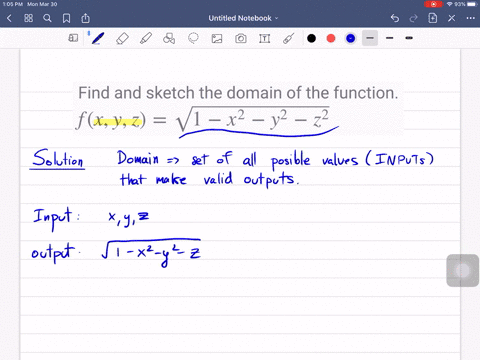 1:05 PM Mon Mar 30
93%
Untitled Notebook
Find and sketch the domain of the function.
f(x, y, z) = √(1 − x² − y² − z²)
Solution Domain => set of all posible values (INPUTs)
that make valid outputs.
Input: x, y, z
output: √(1 − x² − y² − z